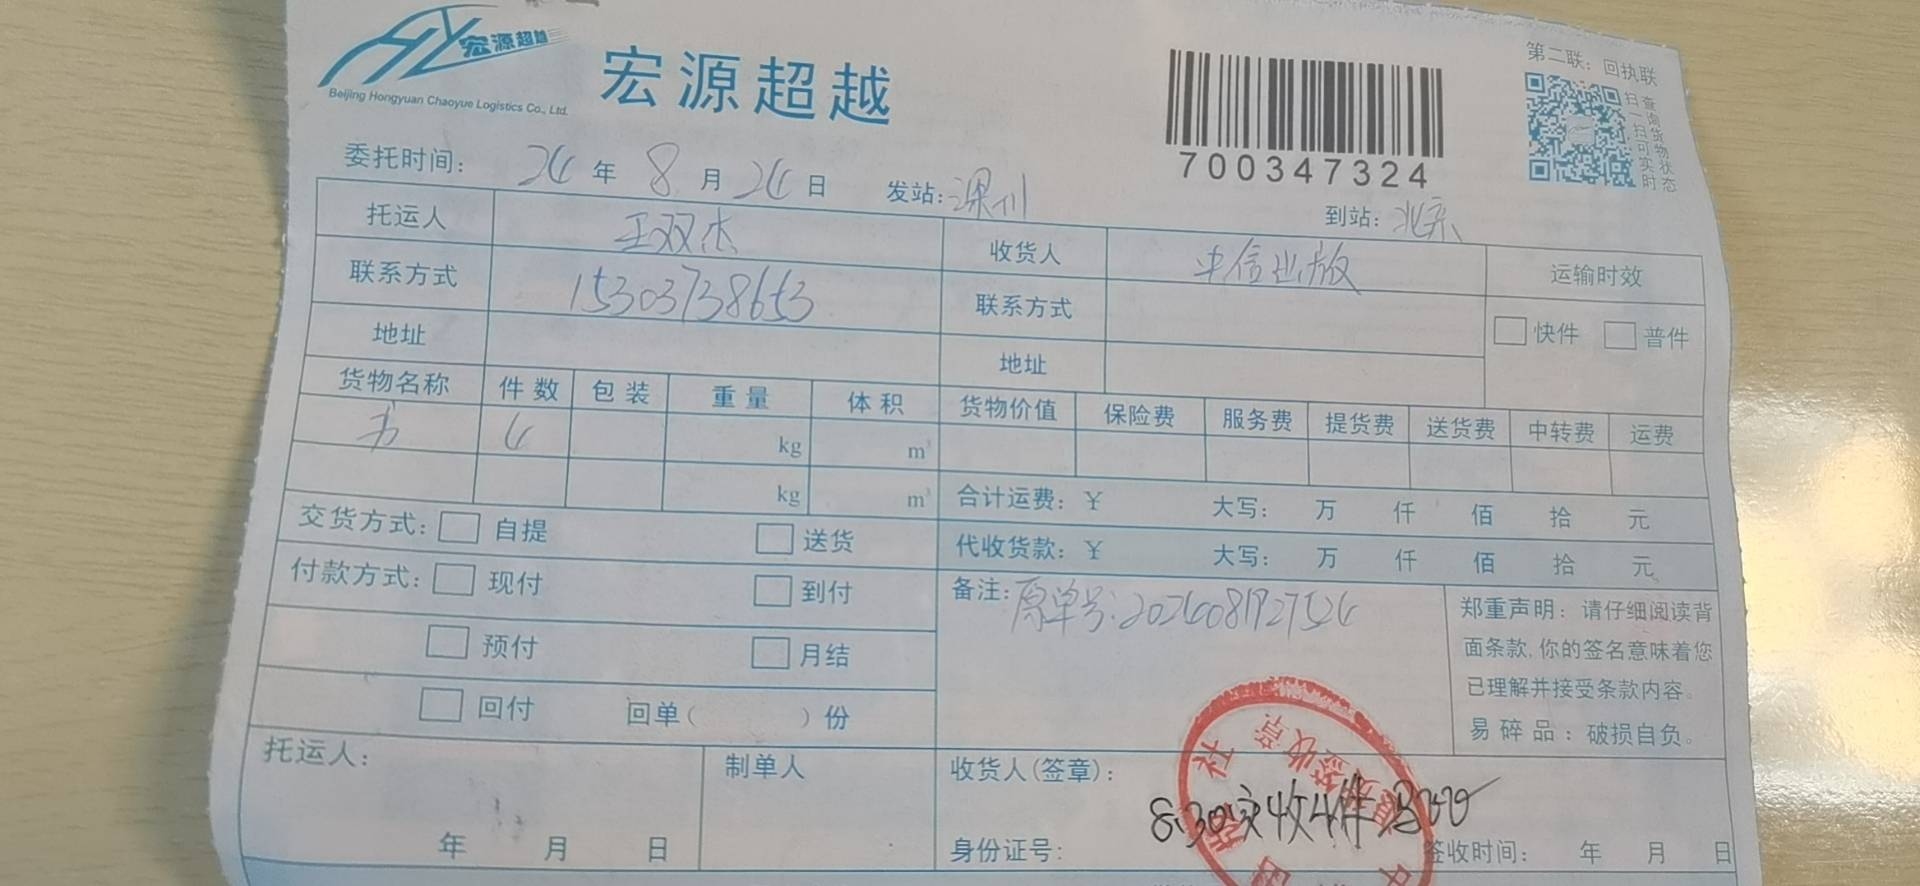 宏源超越
Beijing Hongyuan Chaoyue Logistics Co., Ltd.
宏源超越
700347324
第二联：回执联
扫一扫可实时
查询货物状态
委托时间： 24 年 8 月 24 日 发站：深圳 到站：北京
托运人 王双杰 收货人 中信出版 运输时效
联系方式 15303738653 联系方式 快件 普件
地址 地址
货物名称 件数 包装 重量 体积 货物价值 保险费 服务费 提货费 送货费 中转费 运费
书 4 kg m³
kg m³
合计运费：￥ 大写： 万 仟 佰 拾 元
交货方式： 自提 送货
代收货款：￥ 大写： 万 仟 佰 拾 元
付款方式： 现付 到付
预付 月结
回付 回单（ ）份
备注：原单号：2024081927524
郑重声明：请仔细阅读背
面条款，你的签名意味着您
已理解并接受条款内容。
易碎品：破损自负。
托运人：
年 月 日
制单人
收货人(签章)：
8.30实收4件
身份证号： 签收时间： 年 月 日
社
签收章